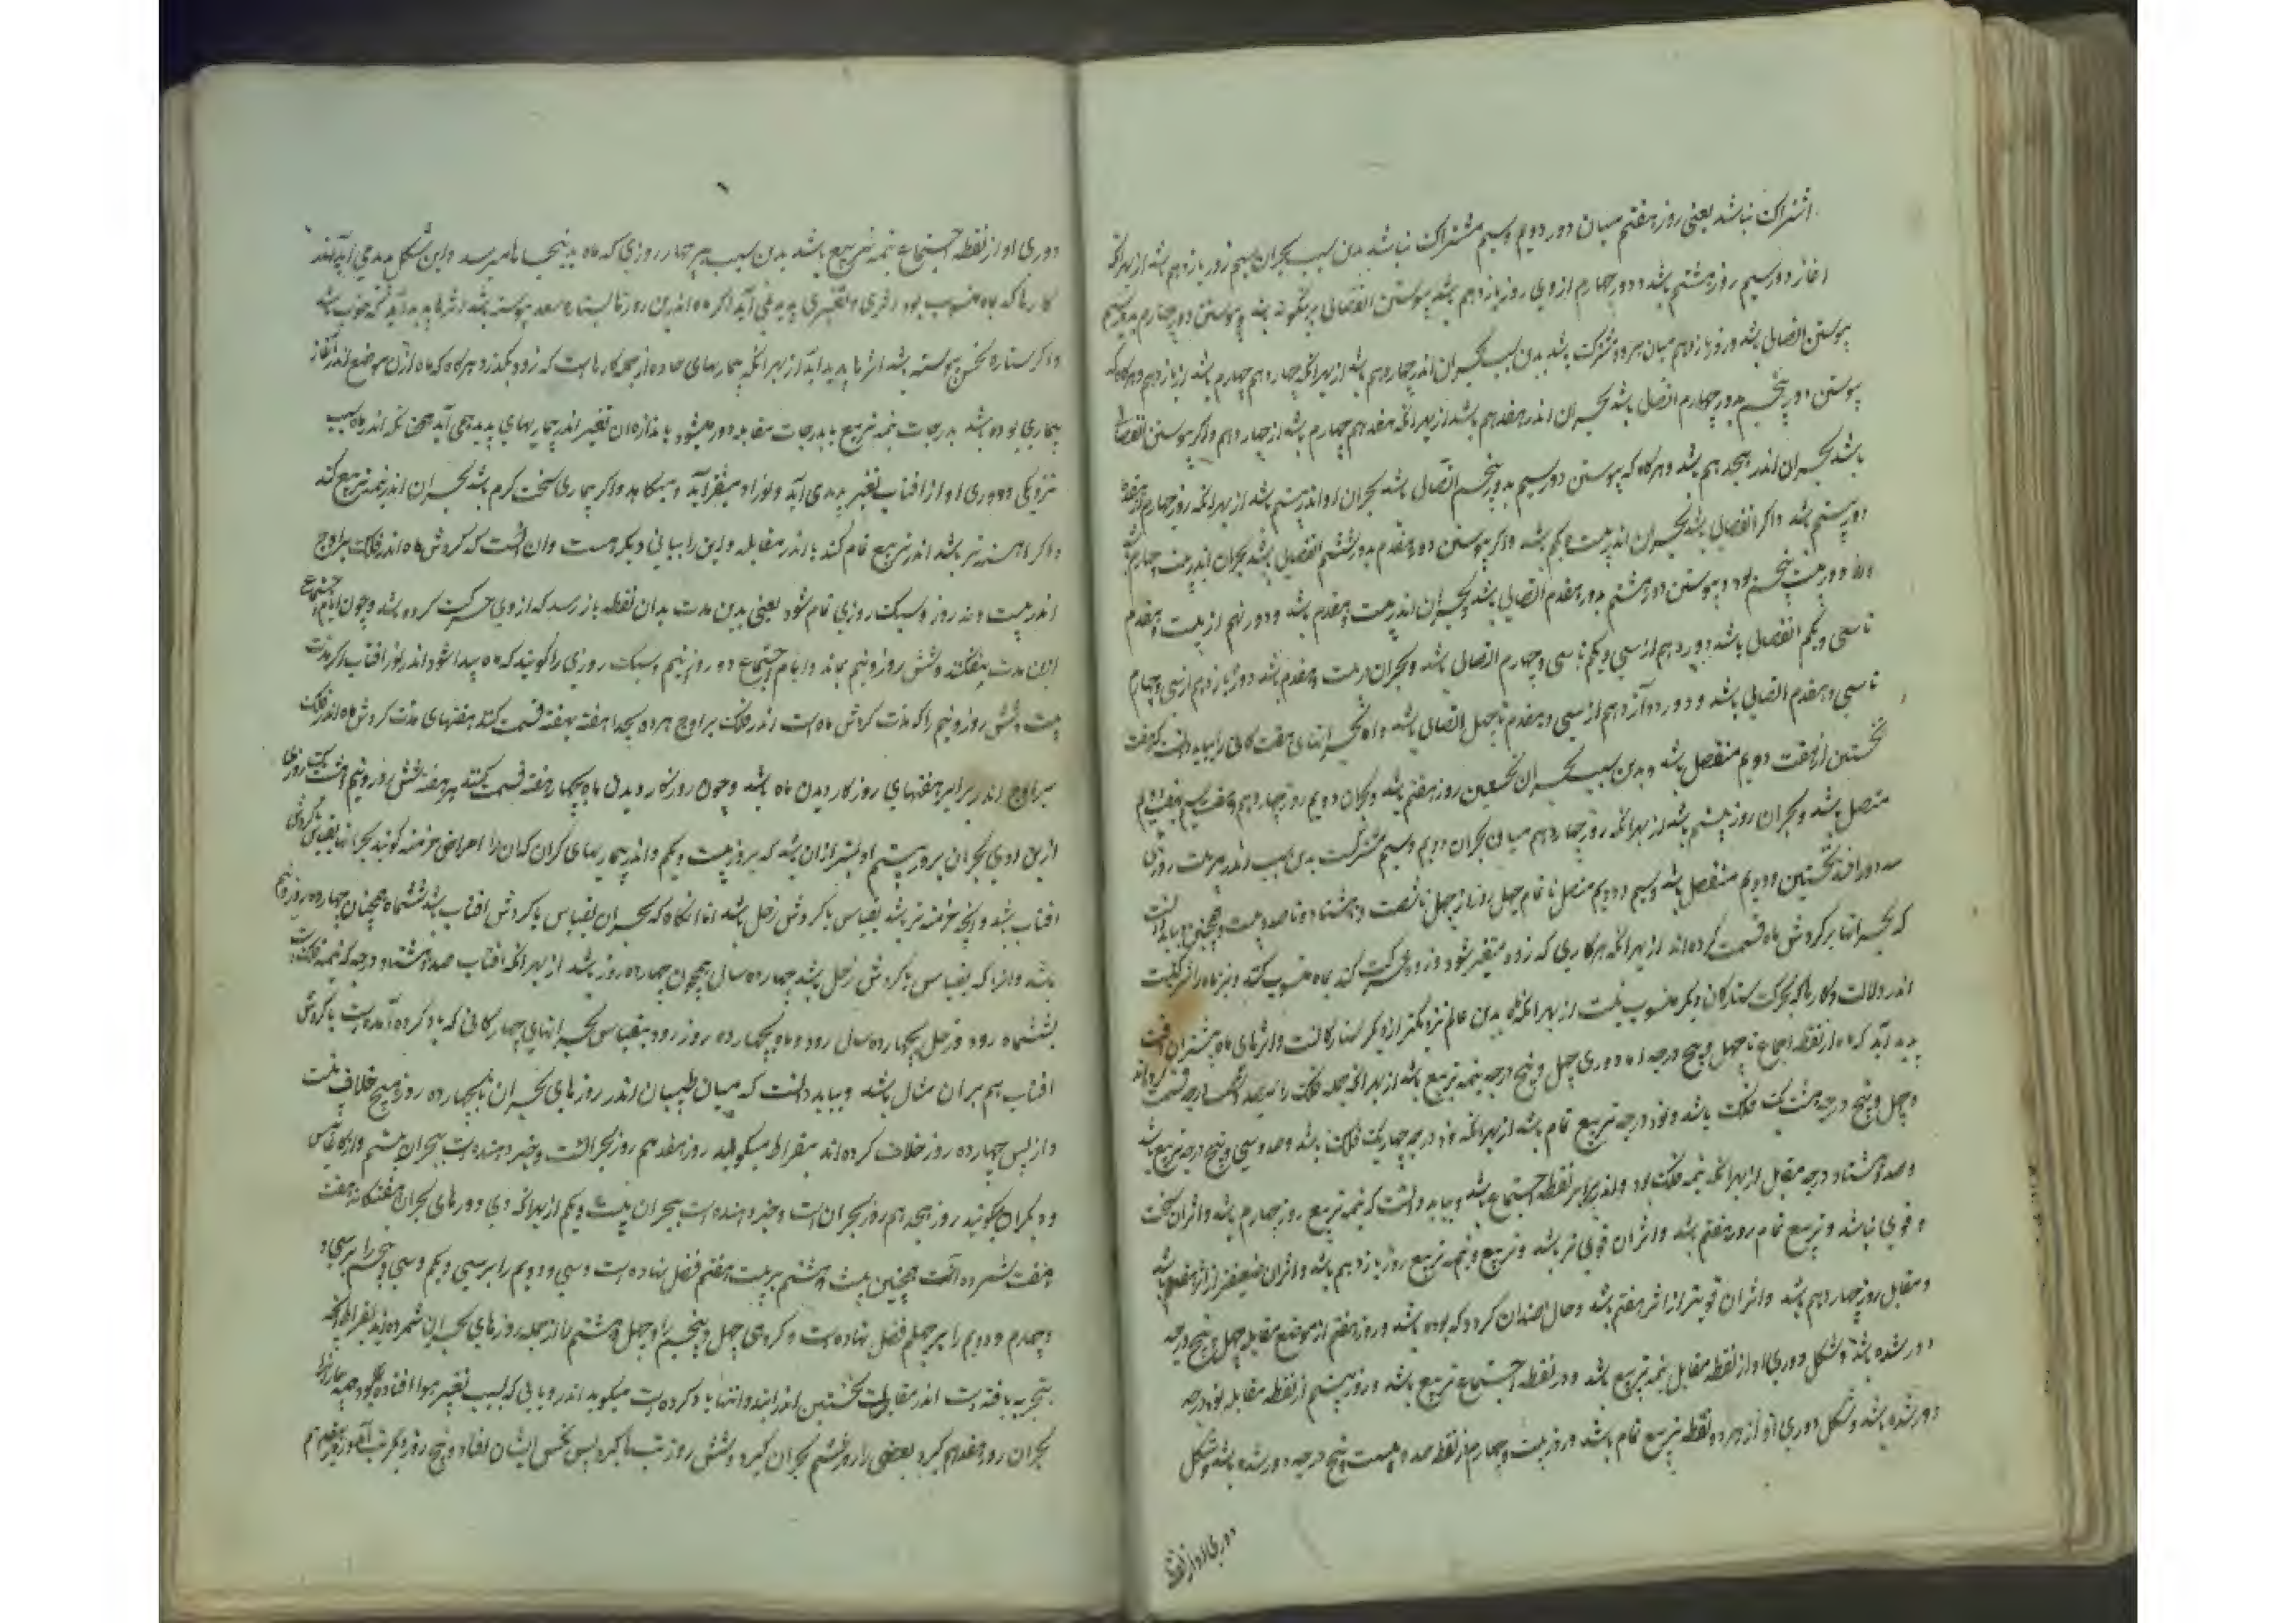 اشتراک نباشد یعنی روز هفتم میان دور دویم و سیم مشترک نباشد بدین سبب بحران سیم روز یازدهم باشد از بهر آنکه
اغاز دور سیم روز هشتم باشد و دور چهارم از وی روز یازدهم باشد پیوستن انفصالی برینگونه باشد و پیوستن دور چهارم بدور سیم
پیوستن اتصالی باشد و روز یازدهم میان هر دو مشترک باشد بدین سبب بحران اندر چهاردهم باشد از بهر آنکه چهاردهم چهارم باشد از یازدهم و هرگاه که
پیوستن دور پنجم بدور چهارم اتصالی باشد بحران اندر هفدهم باشد از بهر آنکه هفدهم چهارم باشد از چهاردهم و اگر پیوستن انفصالی
باشد بحران اندر هجدهم باشد و هرگاه که پیوستن دور سیم بدور پنجم اتصالی باشد بحران او اندر بیستم باشد از بهر آنکه روز چهارم از هفده
دور بیستم باشد و اگر انفصالی باشد بحران اندر بیست و یکم باشد و اگر پیوستن دور هفدم بدور ششم انفصالی باشد بحران اندر بیست و چهارم باشد
دور بیست پنجم بود و پیوستن دور هشتم بدور هفدم اتصالی باشد و بحران اندر بیست و هفدم باشد و دور نهم از بیست و هفدم
تا سی و یکم انفصالی باشد دور دهم از سی و یکم تا سی و چهارم اتصالی باشد و بحران بیست و هفدم باشد دور یازدهم از سی و چهارم
تا سی و هفدم اتصالی باشد و دور دوازدهم از سی و هفدم تا چهل اتصالی باشد و اما بحرانهای هفت گانی را بباید دانست که هفت
نخستین از هفت دویم منفصل باشد و بدین سبب بحران نخستین روز هفتم باشد و بحران دویم روز چهاردهم و هفت سیم بهفت دویم
متصل باشد و بحران روز بیستم باشد از بهر آنکه روز چهاردهم میان بحران دویم و سیم مشترکست بدین سبب اندر هر بیست روزی
سه دور افتد نخستین و دویم منفصل باشد و سیم و دویم متصل تا تمام چهل روز و از چهل تا شصت و هشتاد و تا صد و بیست و همچنین و بباید دانست
که بحرانها بر گردش ماه قسمت کرده اند از بهر آنکه هر کاری که زود متغیر شود و زود حرکت کند بماه منسوب کنند و نیز ماه را شرکتست
اندر دلالت و کارها که بحرکت ستارگان دیگر منسوبست از بهر آنکه ماه بدین عالم نزدیکتر از دیگر ستارگانست و اثرهای ماه بیشتر آن وقت
پدید آید که ماه از نقطه اجتماع تا چهل و پنج درجه اما دوری چهل و پنج درجه نیمه تربیع باشد از بهر آنکه جمله فلک را سیصد و شصت درجه قسمت کرده اند
و چهل و پنج درجه هشت یک فلک باشد و نود درجه تربیع تمام باشد از بهر آنکه نود درجه چهار یک فلک باشد و صد و سی و پنج درجه تربیع باشد
و صد و هشتاد درجه مقابل از بهر آنکه نیمه فلک بود و اندر برابر نقطه اجتماع باشد و بباید دانست که نیمه تربیع روز چهارم باشد و اثر آن سخت
و قوی نباشد و تربیع تمام روز هفتم باشد و اثر آن قوی تر باشد و تربیع و نیمه تربیع روز یازدهم باشد و اثر آن ضعیفتر از اثر هفتم باشد
و مقابل روز چهاردهم باشد و اثر آن قویتر از اثر هفتم باشد و حال بضد آن گردد که بوده باشد و روز هفتم از موضع مقابل چهل و پنج درجه
دور شده باشد و شکل دوری او از نقطه مقابل نیمه تربیع باشد و در نقطه اجتماع تربیع باشد و روز بیستم از نقطه مقابله نود درجه
دور شده باشد و شکل دوری او از هر دو نقطه تربیع تمام باشد و روز بیست و چهارم از نقطه صد و بیست و پنج درجه دور شده باشد و شکل
دوری او از نقطه
دوری او از نقطه اجتماع نیمه تربیع باشد بدین سبب هر چهار روزی که ماه بدینجاها میرسد و این شکل پدید می آید اندر
کارها که بماه منسوب بود اثری و تغییری پدید می آید اگر ماه اندرین روزها بستاره سعد پیوسته باشد اثرها پدید آید خوب باشد
و اگر ستاره نحس پیوسته باشد اثرها پدید آید از بهر آنکه بیماریهای حاده از جمله کارهاست که زود بگذرد و هرگاه که ماه از آن موضع اندر آغاز
بیماری بوده باشد بدرجات نیمه تربیع یا بدرجات مقابله دور میشود باندازه آن تغیر اندر بیماریهای پدید می آید همچنانکه اندر ماه بسبب
نزدیکی و دوری او از افتاب تغیر پدید می آید و نور او میفزاید و میکاهد و اگر بیماری سخت گرم باشد بحران اندر نیمه تربیع کند
و اگر اهسته تر باشد اندر تربیع تمام کند یا اندر مقابله و این را بیانی دیگرست و ان انست که گردش ماه اندر فلک بر اوج
اندر بیست و نه روز و سیک روزی تمام شود یعنی بدین مدت بدان نقطه باز رسد که از وی حرکت کرده باشد و چون ایام اجتماع
ازین مدت بیفکنند بیست و شش روز و نیم بماند و ایام اجتماع دو روز و نیم و سیک روزی را گویند که ماه پیدا نشود اندر نور افتاب اگر مدت
بیست و شش روز و نیم را که مدت گردش ماه است اندر فلک بر اوج هر ده بجدا هفته بهفته قسمت کنند هفتهای مدت گردش ماه اندر فلک
بر اوج اندر برابر هفتهای روزگار دیدن ماه باشد و چون روزگار دیدن ماه بچهار هفته قسمت کنند هر هفته شش روز و نیم و هشت یک روزی
ازین روی بحران بروز بیستم اولیتر از آن باشد که بروز بیست و یکم و اندر بیماریهای گران که آن را امراض مزمنه گویند بحرانها بقیاس با گردش
افتاب باشد و آنچه مزمنه تر باشد بقیاس با گردش زحل باشد اما آنگاه که بحران بقیاس با گردش افتاب باشد ششماه همچنان چهارده روز و نیم
باشد و انرا که بقیاس با گردش زحل باشد چهارده سال همچون چهارده روز باشد از بهر آنکه افتاب صد و هشتاد درجه که نیمه فلکست
بششماه رود و زحل بچهارده سال رود و ماه بچهارده روز رود بقیاس بحرانهای چهارگانی که یاد کرده آمدست با گردش
افتاب هم بر آن مثال باشد و بباید دانست که میان طبیبان اندر روزهای بحران تا بچهارده روز هیچ خلاف نیست
و از پس چهارده روز خلاف کرده اند بقراط میگوید روز هفدهم روز بحرانست و خبر دهنده است ببحران بیستم و ارکاغانیس
و دیگران گویند روز هجدهم روز بحران است و خبر دهنده است ببحران بیست و یکم از بهر آنکه وی دورهای بحران هفتگانه هفت
و هفت شمرده است همچنین بیست و هشتم بر بیست هفتم فضل نهاده است و سی و دویم را بر سی و یکم و سی و پنجم را بر سی و
و چهارم و دویم را بر چهلم فضل نهاده است و گروهی چهل و پنجم را و چهل و هشتم را از جمله روزهای بحران شمرده اند بقراط آنچه
بتجربه یافته است اندر مقالت نخستین از ابیدیمیا یاد کرده است میگوید اندر وبایی که بسبب تغیر هوا افتاده بود همه بیمارانرا
بحران روز هفدهم کرد بعضی را روز ششم بحران کرد و شش روز تب نا کرد پس نکس ایشان افتاد و پنج روز دیگر تب آمد و روز هفدهم